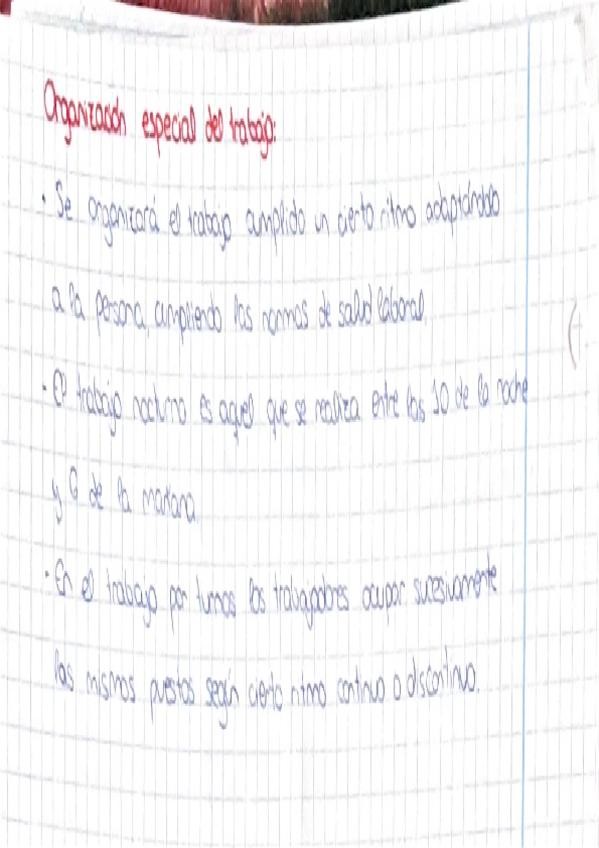 Organización especial del trabajo:
· Se organizará el trabajo cumplido un cierto ritmo adaptándolo
a la persona, cumpliendo las normas de salud laboral.
· El trabajo nocturno es aquel que se realiza entre las 10 de la noche
y 6 de la mañana.
· En el trabajo por turnos los trabajadores ocupan sucesivamente
los mismos puestos según cierto ritmo continuo o discontinuo.